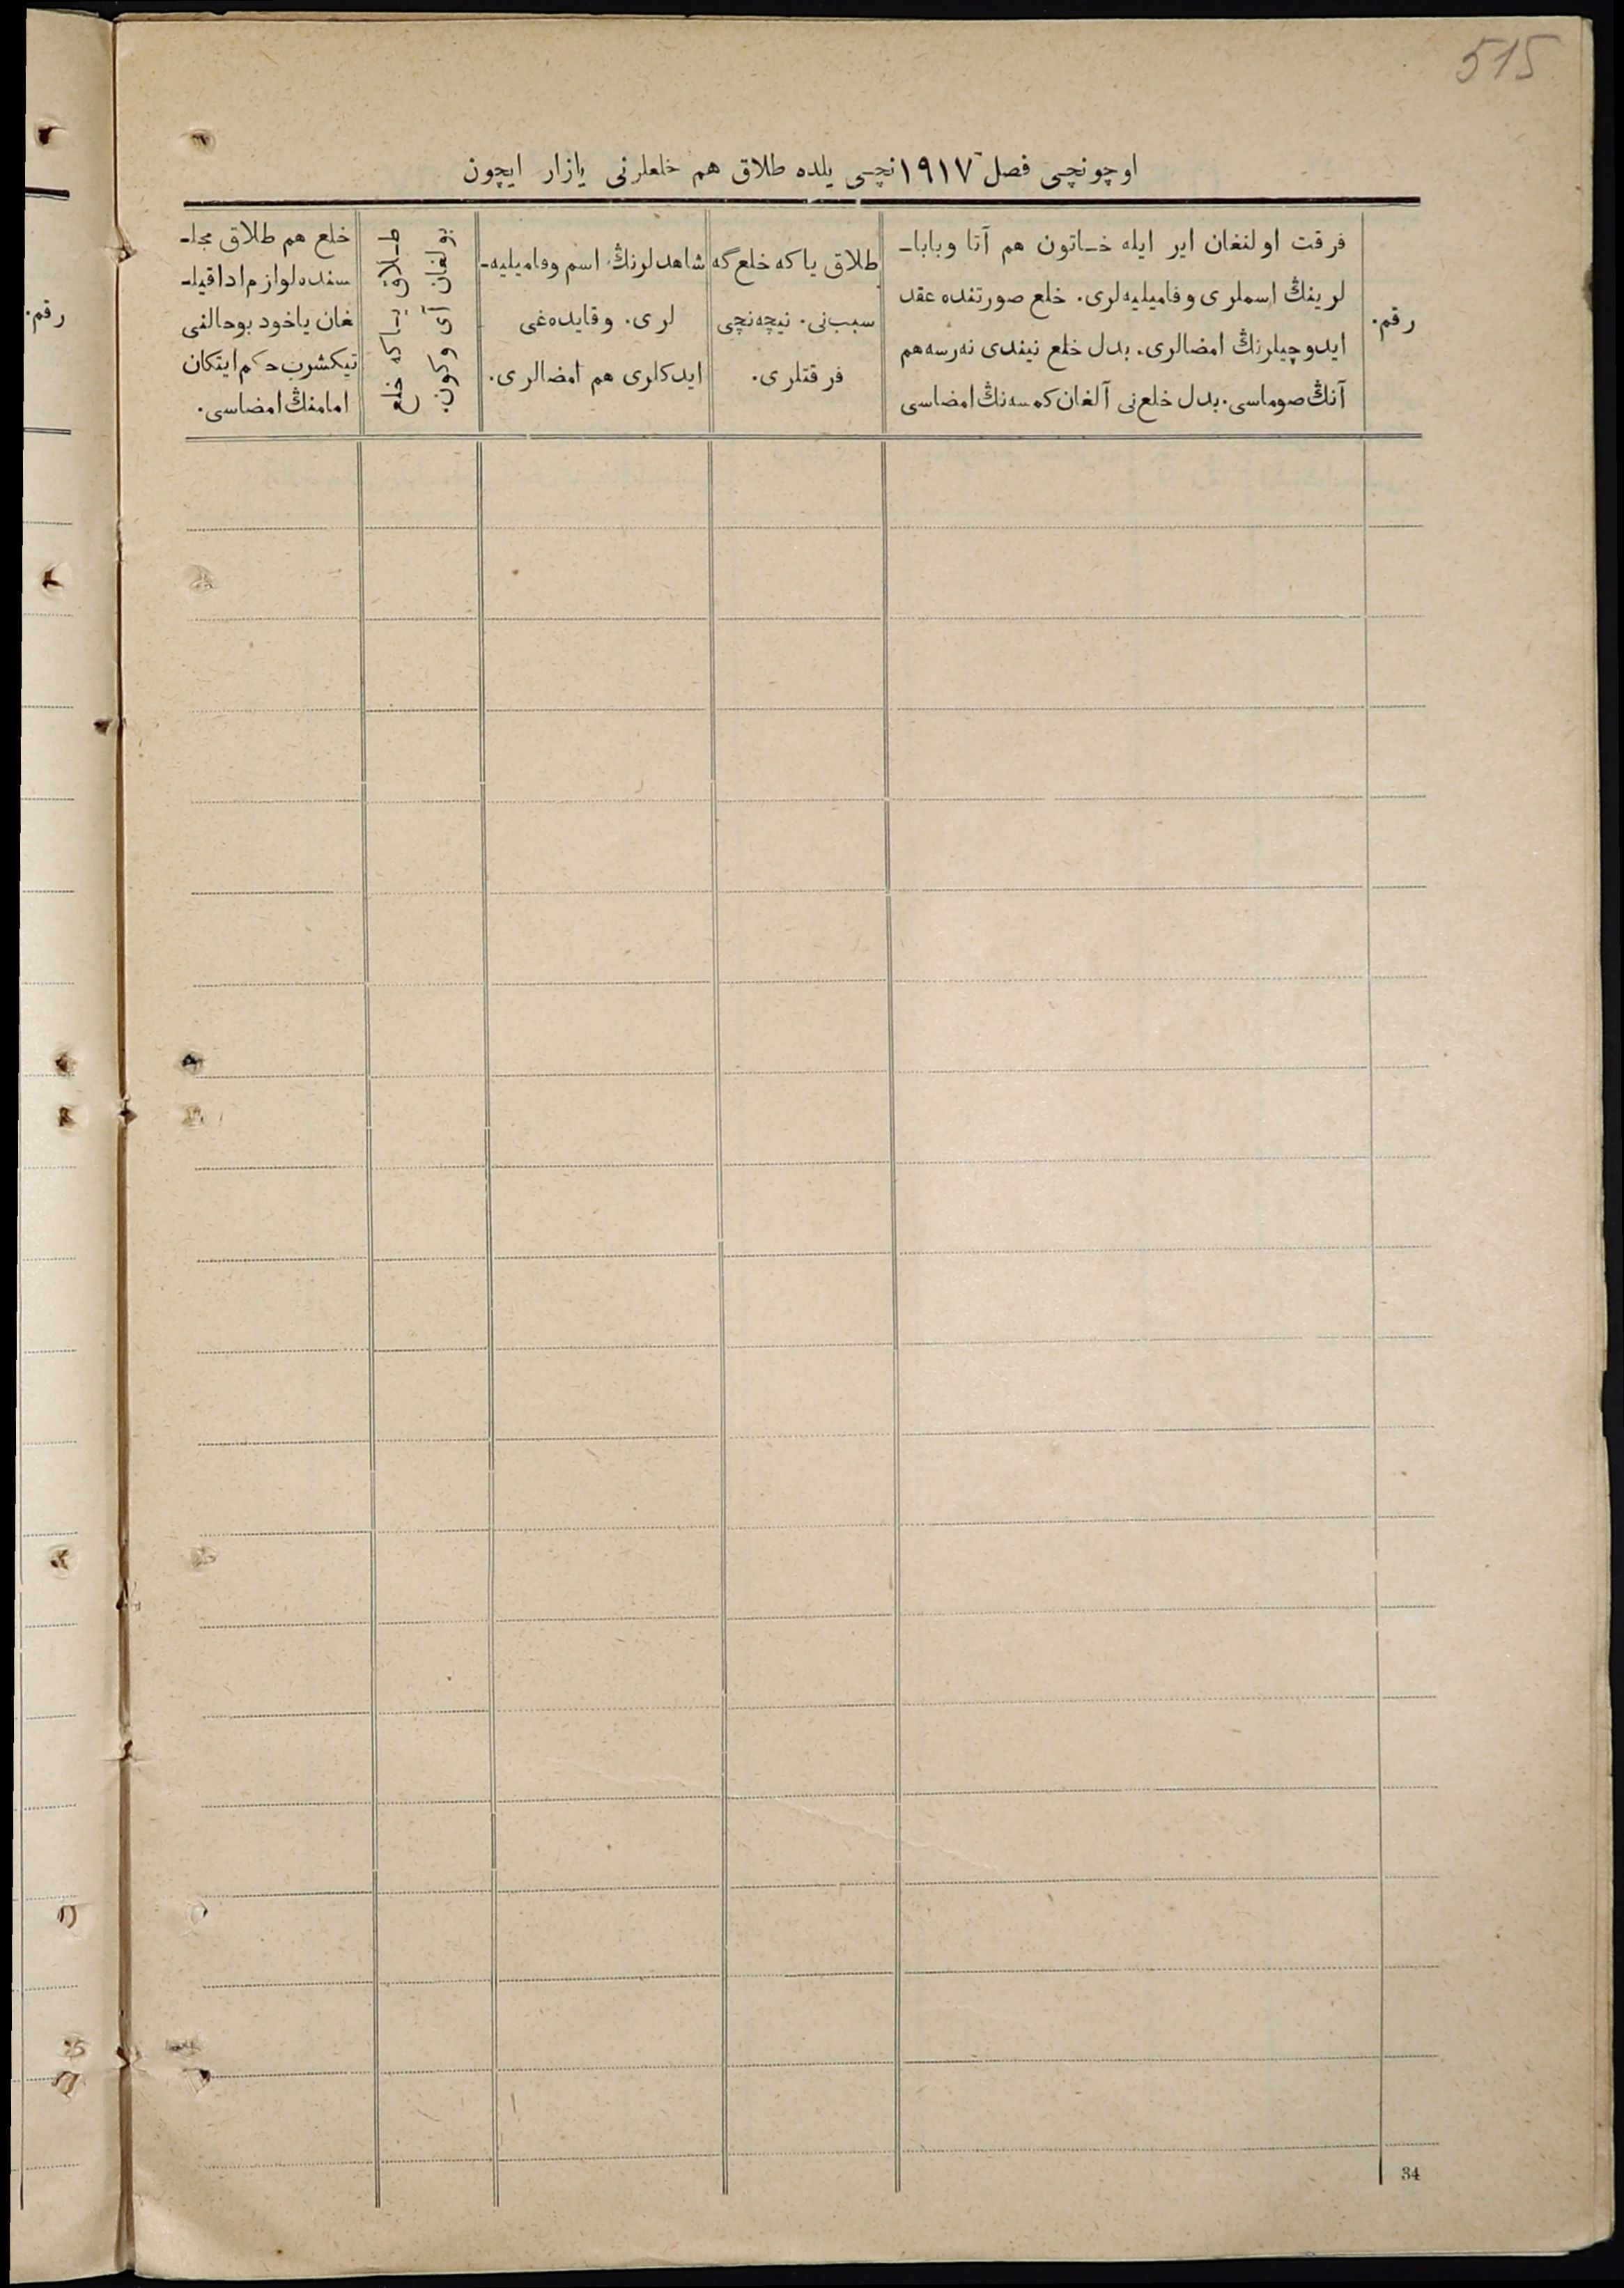 515
اوچونچی فصل ١٩١٧نچی یلده طلاق هم خلعلرنی یازار ایچون
رقم.
فرقت اولنغان ایر ایله خاتون هم آتا وبابا-
لرینڭ اسملری وفامیلیه‌لری. خلع صورتنده عقد
ایدوچیلرنڭ امضالری. بدل خلع نیندی نه‌رسه هم
آنڭ صوماسی. بدل خلع نی آلغان کمسه‌نڭ امضاسی
طلاق یاکه خلع گه
سبب نی. نیچه‌نچی
فرقتلری.
شاهدلرنڭ اسم وفامیلیه-
لری. وقایده‌غی
ایدکلری هم امضالری.
طلاق یاکه خلع
بولغان آی وکون.
خلع هم طلاق مجلـ
سنده لوازم اداقیلـ
غان یاخود بوحالنی
تیکشرب حکم ایتکان
امامنڭ امضاسی.
رقم.
34